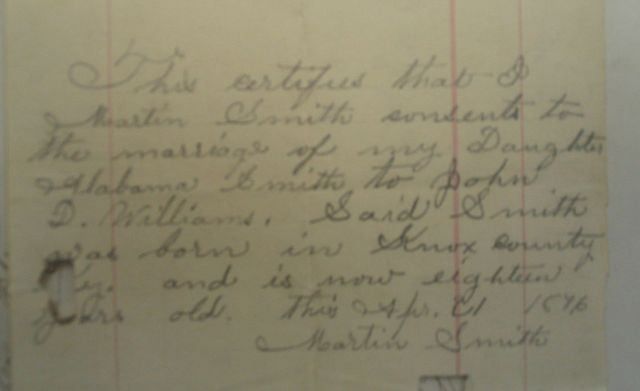 This certifies that I
Martin Smith consents to
the marriage of my Daughter
Alabama Smith to John
D. Williams. Said Smith
was born in Knox county
Ky. and is now eighteen
years old. this Apr. 21 1896
Martin Smith